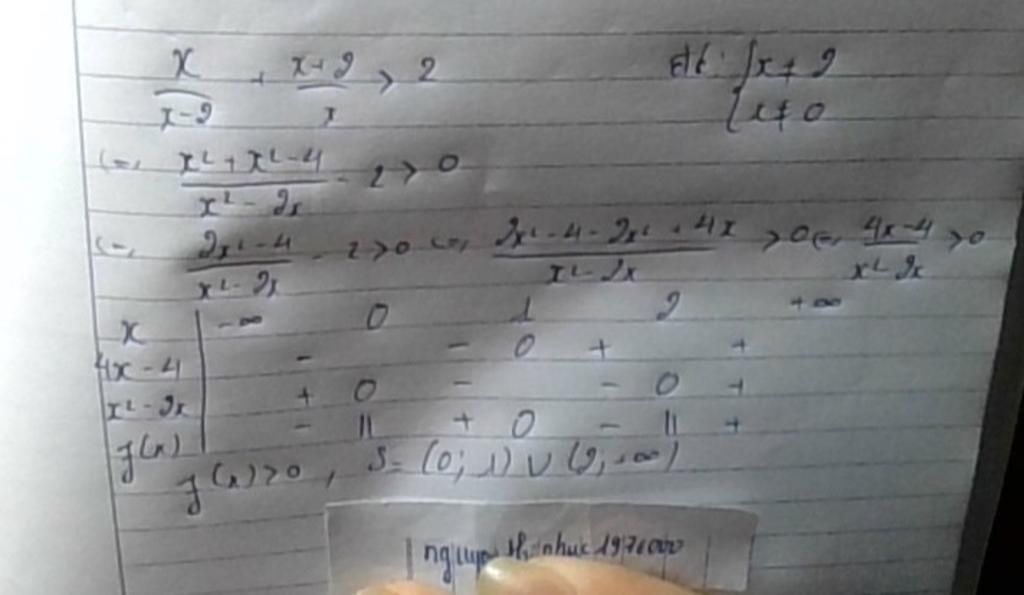 x/(x-2) + (x+2)/x > 2    Đk: { x ≠ 2
{ x ≠ 0
<=> (x² + x² - 4)/(x² - 2x) - 2 > 0
<=> (2x² - 4)/(x² - 2x) - 2 > 0 <=> (2x² - 4 - 2x² + 4x)/(x² - 2x) > 0 <=> (4x - 4)/(x² - 2x) > 0
x | -∞ 0 1 2 +∞
4x - 4 | - - 0 + +
x² - 2x | + 0 - - 0 +
f(x) | - || + 0 - || +
f(x) > 0, S = (0; 1) ∪ (2; +∞)